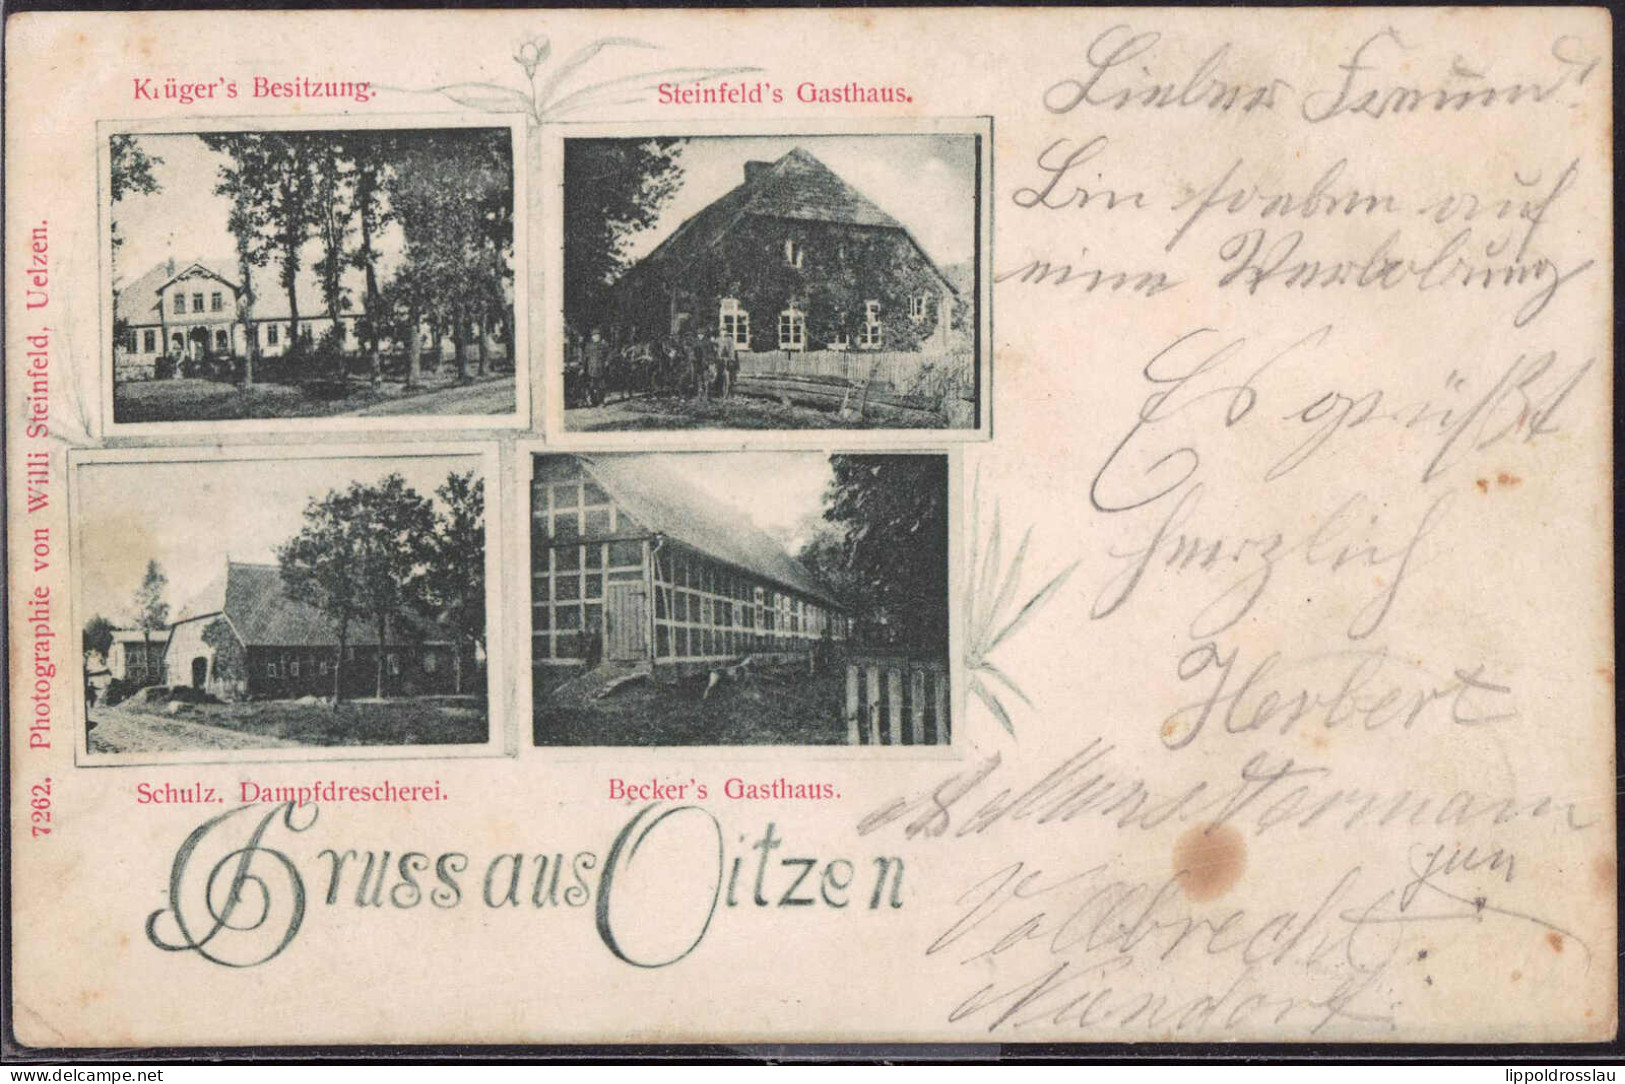 Krüger's Besitzung.
Steinfeld's Gasthaus.
7262. Photographie von Willi Steinfeld, Uelzen.
Schulz. Dampfdrescherei.
Becker's Gasthaus.
Gruss aus Oitzen
Lieber Freund!
Bin soeben auf
eine Verlobung
Es grüßt
herzlich
Herbert
jun
Vollbrecht
Niendorf.
www.delcampe.net
lippoldrosslau